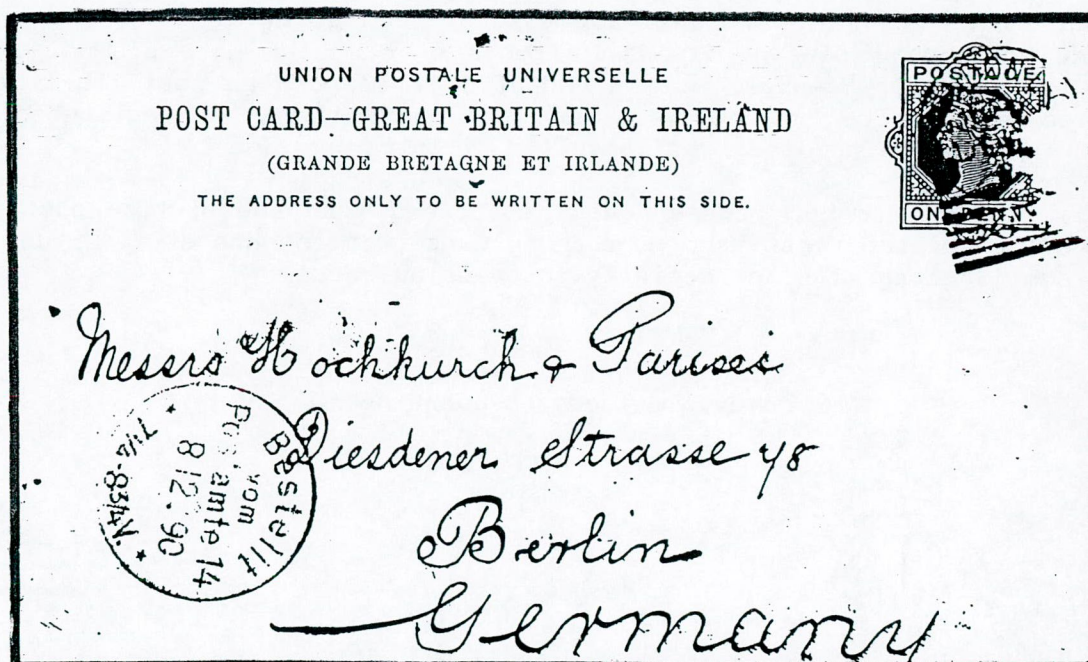 UNION POSTALE UNIVERSELLE
POST CARD—GREAT BRITAIN & IRELAND
(GRANDE BRETAGNE ET IRLANDE)
THE ADDRESS ONLY TO BE WRITTEN ON THIS SIDE.
POSTAGE
ONE PENNY
Messrs Hochkurch & Parises
Diesdener Strasse 78
Berlin
Germany
Bestellt
vom
Postamte 14
8 12. 90
7½-8¾ N